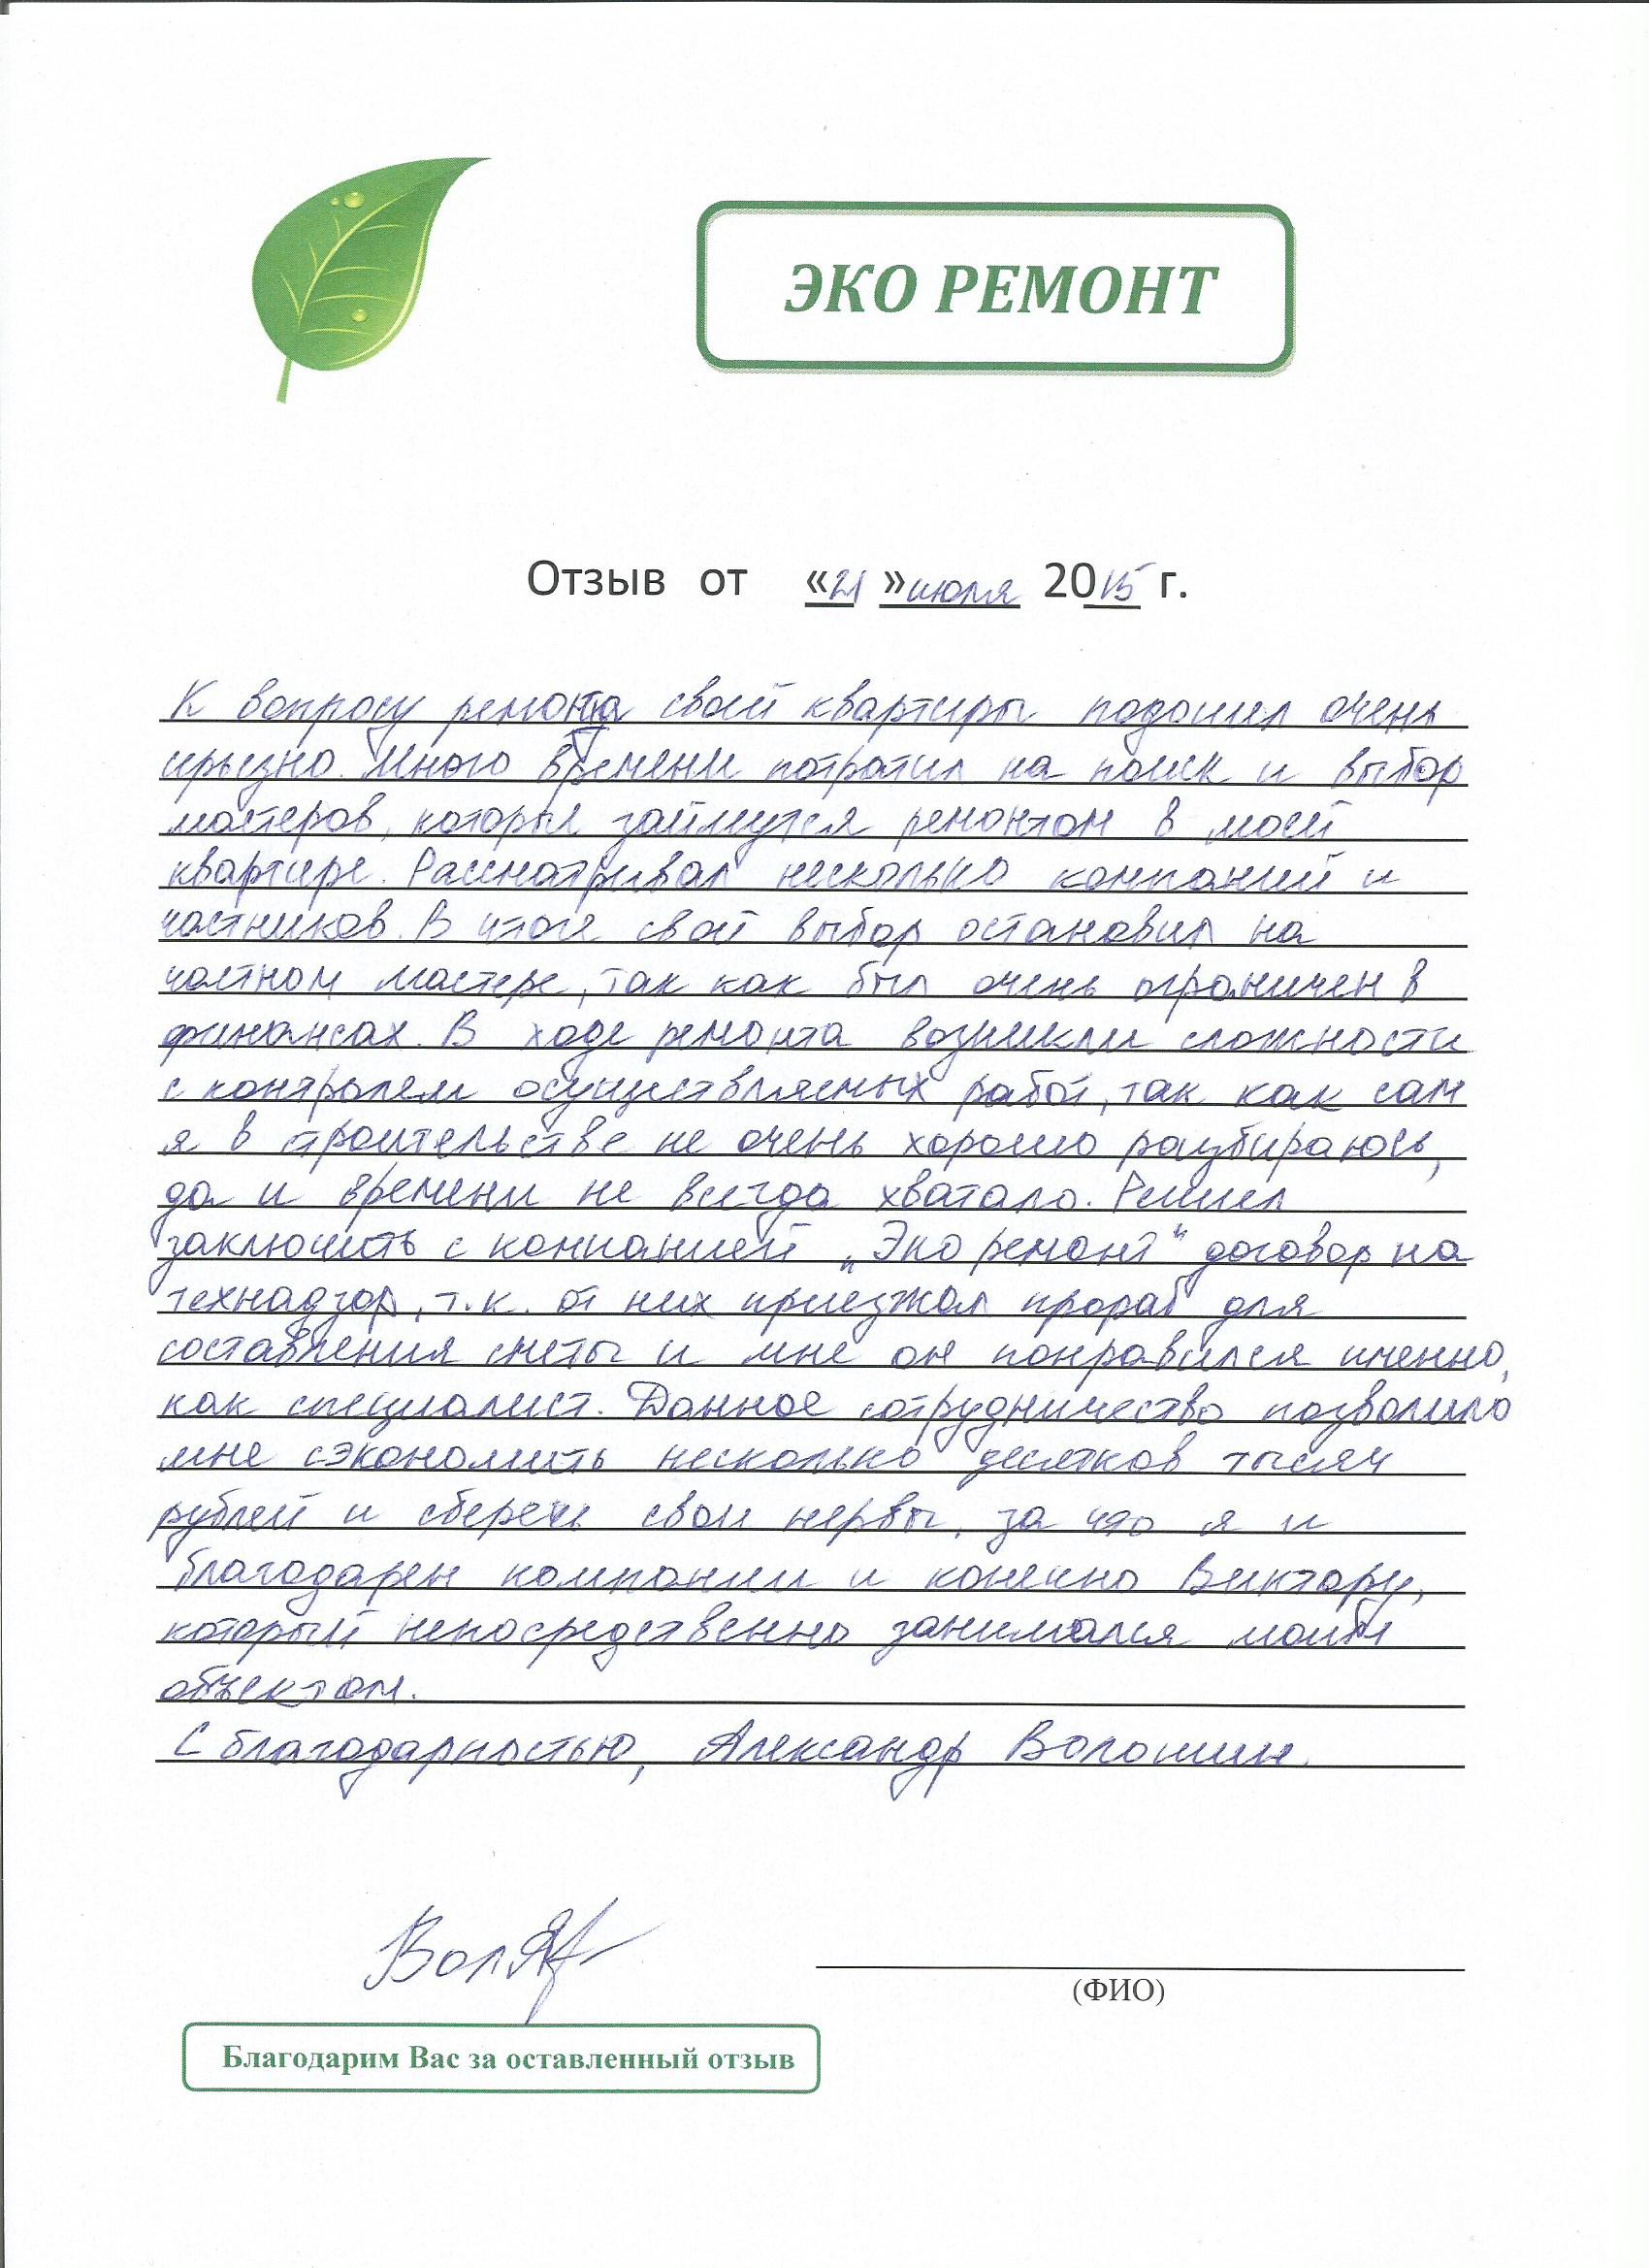 ЭКО РЕМОНТ
Отзыв от «21» июля 2015 г.
К вопросу ремонта своей квартиры подошел очень
серьезно. Много времени потратил на поиск и выбор
мастеров, которые займутся ремонтом в моей
квартире. Рассматривал несколько компаний и
частников. В итоге свой выбор остановил на
частном мастере, так как был очень ограничен в
финансах. В ходе ремонта возникли сложности
с контролем осуществляемых работ, так как сам
я в строительстве не очень хорошо разбираюсь,
да и времени не всегда хватало. Решил
заключить с компанией „Эко ремонт“ договор на
технадзор, т.к. от них приезжал прораб для
составления сметы и мне он понравился именно,
как специалист. Данное сотрудничество позволило
мне сэкономить несколько десятков тысяч
рублей и сберечь свои нервы, за что я и
благодарен компании и конечно Виктору,
который непосредственно занимался моим
объектом.
С благодарностью, Александр Волошин.
(ФИО)
Благодарим Вас за оставленный отзыв